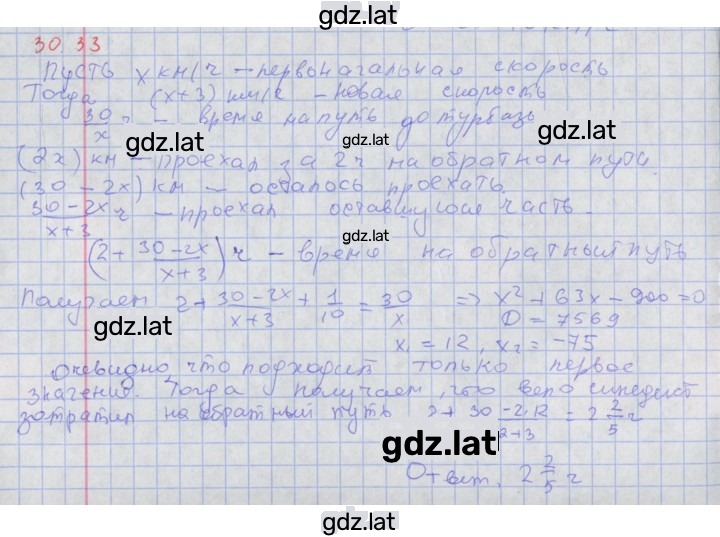 gdz.lat
30.33
Пусть x км/ч – первоначальная скорость
Тогда (x+3) км/ч – новая скорость
30/x ч – время на путь до турбазы
gdz.lat gdz.lat
(2x) км – проехал за 2 ч на обратном пути
(30 – 2x) км – осталось проехать.
gdz.lat
(30 – 2x)/(x+3) ч – проехал оставшуюся часть.
gdz.lat
(2 + (30 – 2x)/(x+3)) ч – время на обратный путь
Получаем 2 + (30 – 2x)/(x+3) + 1/10 = 30/x => x² + 63x – 900 = 0
gdz.lat gdz.lat
D = 7569
x₁ = 12, x₂ = –75
Очевидно, что подходит только первое
значение. Тогда получаем, что велосипедист
затратил на обратный путь 2 + (30 – 2·12)/(12+3) = 2 2/5 ч
gdz.lat
Ответ. 2 2/5 ч
gdz.lat